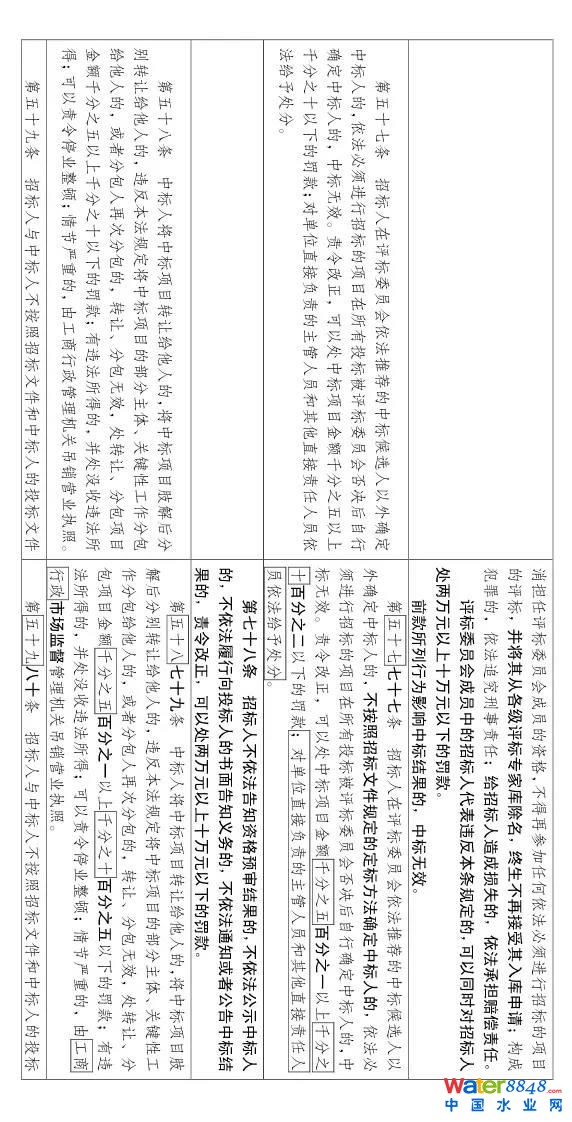 消担任评标委员会成员的资格，不得再参加任何依法必须进行招标的项目
的评标，并将其从各级评标专家库除名，终生不再接受其入库申请；构成
犯罪的，依法追究刑事责任；给招标人造成损失的，依法承担赔偿责任。
评标委员会成员中的招标人代表违反本条规定的，可以同时对招标人
处两万元以上十万元以下的罚款。
前款所列行为影响中标结果的，中标无效。
第五十七条 招标人在评标委员会依法推荐的中标候选人以外确定
中标人的，依法必须进行招标的项目在所有投标被评标委员会否决后自行
确定中标人的，中标无效。责令改正，可以处中标项目金额千分之五以上
千分之十以下的罚款；对单位直接负责的主管人员和其他直接责任人员依
法给予处分。
第五十七七十七条 招标人在评标委员会依法推荐的中标候选人以
外确定中标人的，不按照招标文件规定的定标方法确定中标人的，依法必
须进行招标的项目在所有投标被评标委员会否决后自行确定中标人的，中
标无效。责令改正，可以处中标项目金额千分之五百分之一以上千分之
十百分之二以下的罚款；对单位直接负责的主管人员和其他直接责任人
员依法给予处分。
第七十八条 招标人不依法告知资格预审结果的，不依法公示中标人
的，不依法履行向投标人的书面告知义务的，不依法通知或者公告中标结
果的，责令改正，可以处两万元以上十万元以下的罚款。
第五十八条 中标人将中标项目转让给他人的，将中标项目肢解后分
别转让给他人的，违反本法规定将中标项目的部分主体、关键性工作分包
给他人的，或者分包人再次分包的，转让、分包无效，处转让、分包项目
金额千分之五以上千分之十以下的罚款；有违法所得的，并处没收违法所
得；可以责令停业整顿；情节严重的，由工商行政管理机关吊销营业执照。
第五十八七十九条 中标人将中标项目转让给他人的，将中标项目肢
解后分别转让给他人的，违反本法规定将中标项目的部分主体、关键性工
作分包给他人的，或者分包人再次分包的，转让、分包无效，处转让、分
包项目金额千分之五百分之一以上千分之十百分之五以下的罚款；有违
法所得的，并处没收违法所得；可以责令停业整顿；情节严重的，由工商
行政市场监督管理机关吊销营业执照。
第五十九条 招标人与中标人不按照招标文件和中标人的投标文件
第五十九八十条 招标人与中标人不按照招标文件和中标人的投标
Water8848.com
中国水业网